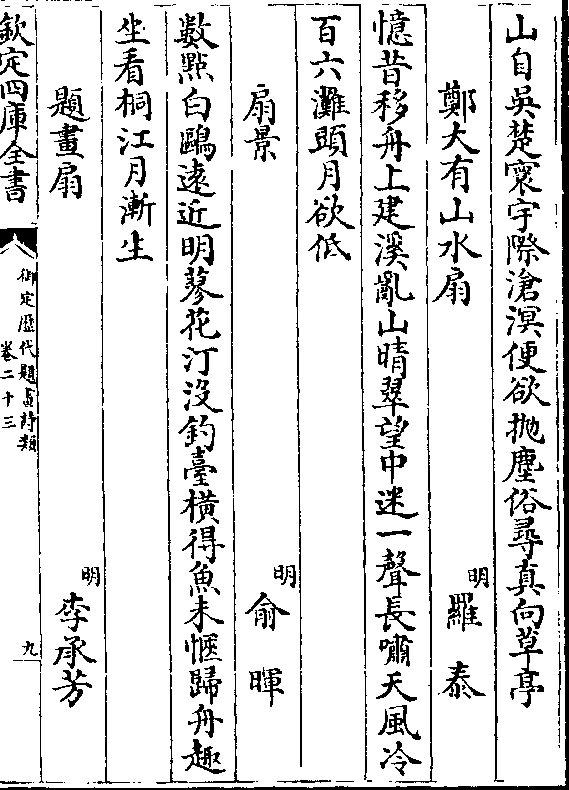 山自吳楚寰宇際滄溟便欲抛塵俗尋真向草亭
鄭大有山水扇 明 羅泰
憶昔移舟上建溪亂山晴翠望中迷一聲長嘯天風冷
百六灘頭月欲低
扇景 明 俞暉
數點白鷗遠近明蓼花汀沒釣臺橫得魚未愜歸舟趣
坐看桐江月漸生
題畫扇 明 李承芳
欽定四庫全書
御定歴代題畫詩類
卷二十三
九